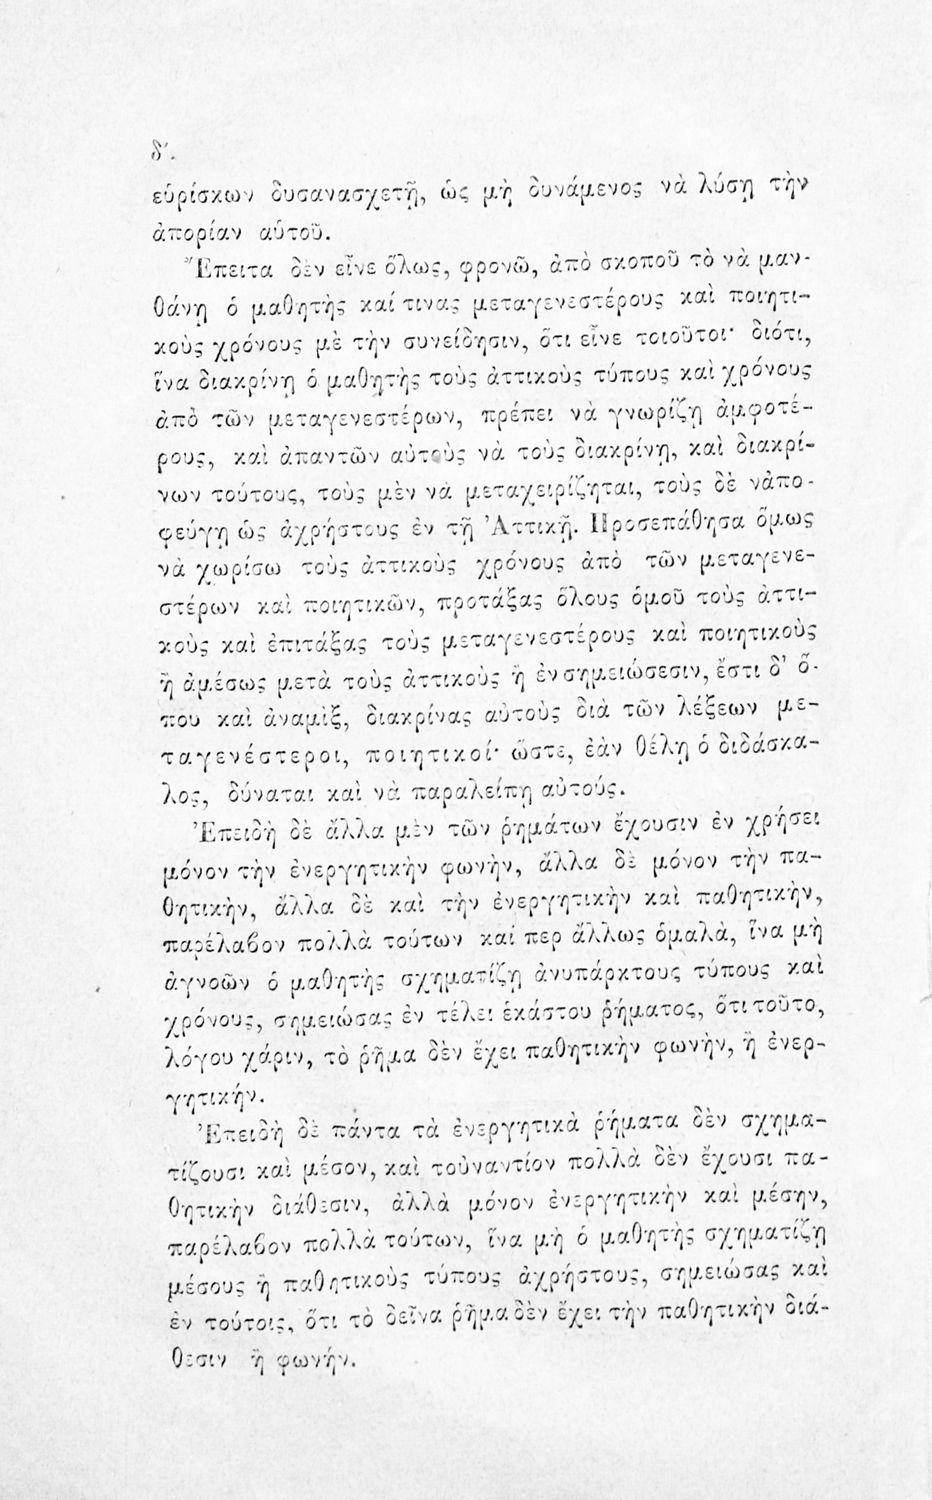 δ'.
εὑρίσκων δυσανασχετῇ, ὡς μὴ δυνάμενος νὰ λύσῃ τὴν
ἀπορίαν αὑτοῦ.
Ἔπειτα δὲν εἶνε ὅλως, φρονῶ, ἀπὸ σκοποῦ τὸ νὰ μαν-
θάνῃ ὁ μαθητὴς καί τινας μεταγενεστέρους καὶ ποιητι-
κοὺς χρόνους μὲ τὴν συνείδησιν, ὅτι εἶνε τοιοῦτοι· διότι,
ἵνα διακρίνῃ ὁ μαθητὴς τοὺς ἀττικοὺς τύπους καὶ χρόνους
ἀπὸ τῶν μεταγενεστέρων, πρέπει νὰ γνωρίζῃ ἀμφοτέ-
ρους, καὶ ἀπαντῶν αὐτοὺς νὰ τοὺς διακρίνῃ, καὶ διακρί-
νων τούτους, τοὺς μὲν νὰ μεταχειρίζηται, τοὺς δὲ νἀπο-
φεύγῃ ὡς ἀχρήστους ἐν τῇ Ἀττικῇ. Προσεπάθησα ὅμως
νὰ χωρίσω τοὺς ἀττικοὺς χρόνους ἀπὸ τῶν μεταγενε-
στέρων καὶ ποιητικῶν, προτάξας ὅλους ὁμοῦ τοὺς ἀττι-
κοὺς καὶ ἐπιτάξας τοὺς μεταγενεστέρους καὶ ποιητικοὺς
ἢ ἀμέσως μετὰ τοὺς ἀττικοὺς ἢ ἐν σημειώσεσιν, ἔστι δ' ὅ-
που καὶ ἀναμὶξ, διακρίνας αὐτοὺς διὰ τῶν λέξεων με-
ταγενέστεροι, ποιητικοί· ὥστε, ἐὰν θέλῃ ὁ διδάσκα-
λος, δύναται καὶ νὰ παραλείπῃ αὐτούς.
Ἐπειδὴ δὲ ἄλλα μὲν τῶν ῥημάτων ἔχουσιν ἐν χρήσει
μόνον τὴν ἐνεργητικὴν φωνὴν, ἄλλα δὲ μόνον τὴν πα-
θητικὴν, ἄλλα δὲ καὶ τὴν ἐνεργητικὴν καὶ παθητικὴν,
παρέλαβον πολλὰ τούτων καί περ ἄλλως ὁμαλὰ, ἵνα μὴ
ἀγνοῶν ὁ μαθητὴς σχηματίζῃ ἀνυπάρκτους τύπους καὶ
χρόνους, σημειώσας ἐν τέλει ἑκάστου ῥήματος, ὅτι τοῦτο,
λόγου χάριν, τὸ ῥῆμα δὲν ἔχει παθητικὴν φωνὴν, ἢ ἐνερ-
γητικήν.
Ἐπειδὴ δὲ πάντα τὰ ἐνεργητικὰ ῥήματα δὲν σχημα-
τίζουσι καὶ μέσον, καὶ τοὐναντίον πολλὰ δὲν ἔχουσι πα-
θητικὴν διάθεσιν, ἀλλὰ μόνον ἐνεργητικὴν καὶ μέσην,
παρέλαβον πολλὰ τούτων, ἵνα μὴ ὁ μαθητὴς σχηματίζῃ
μέσους ἢ παθητικοὺς τύπους ἀχρήστους, σημειώσας καὶ
ἐν τούτοις, ὅτι τὸ δεῖνα ῥῆμα δὲν ἔχει τὴν παθητικὴν διά-
θεσιν ἢ φωνήν.